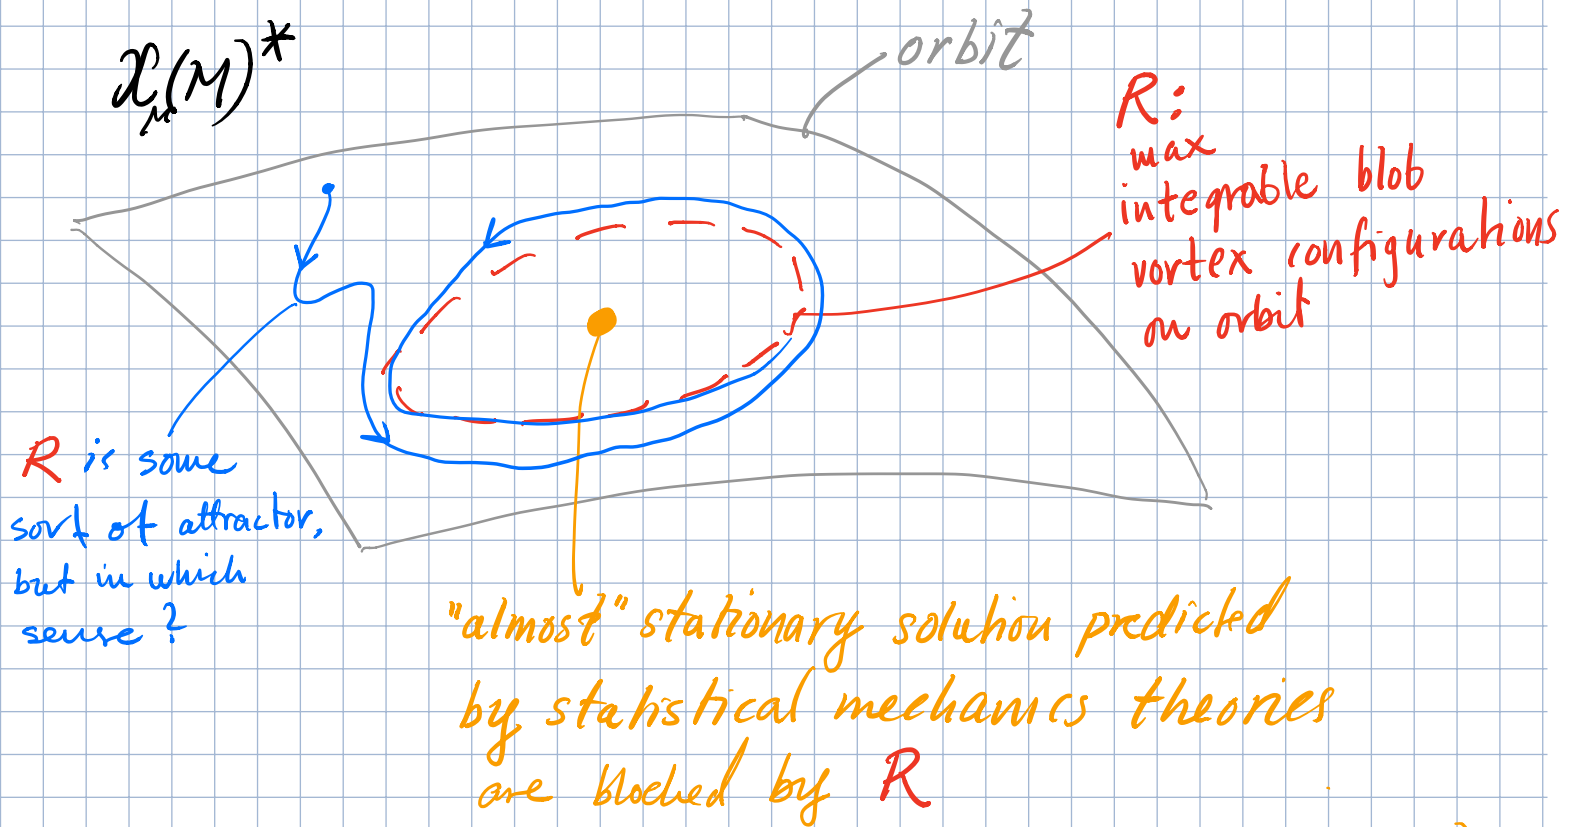 𝔛_μ(M)*
orbit
R:
max
integrable blob
vortex configurations
on orbit
R is some
sort of attractor,
but in which
sense?
"almost" stationary solution predicted
by statistical mechanics theories
are blocked by R